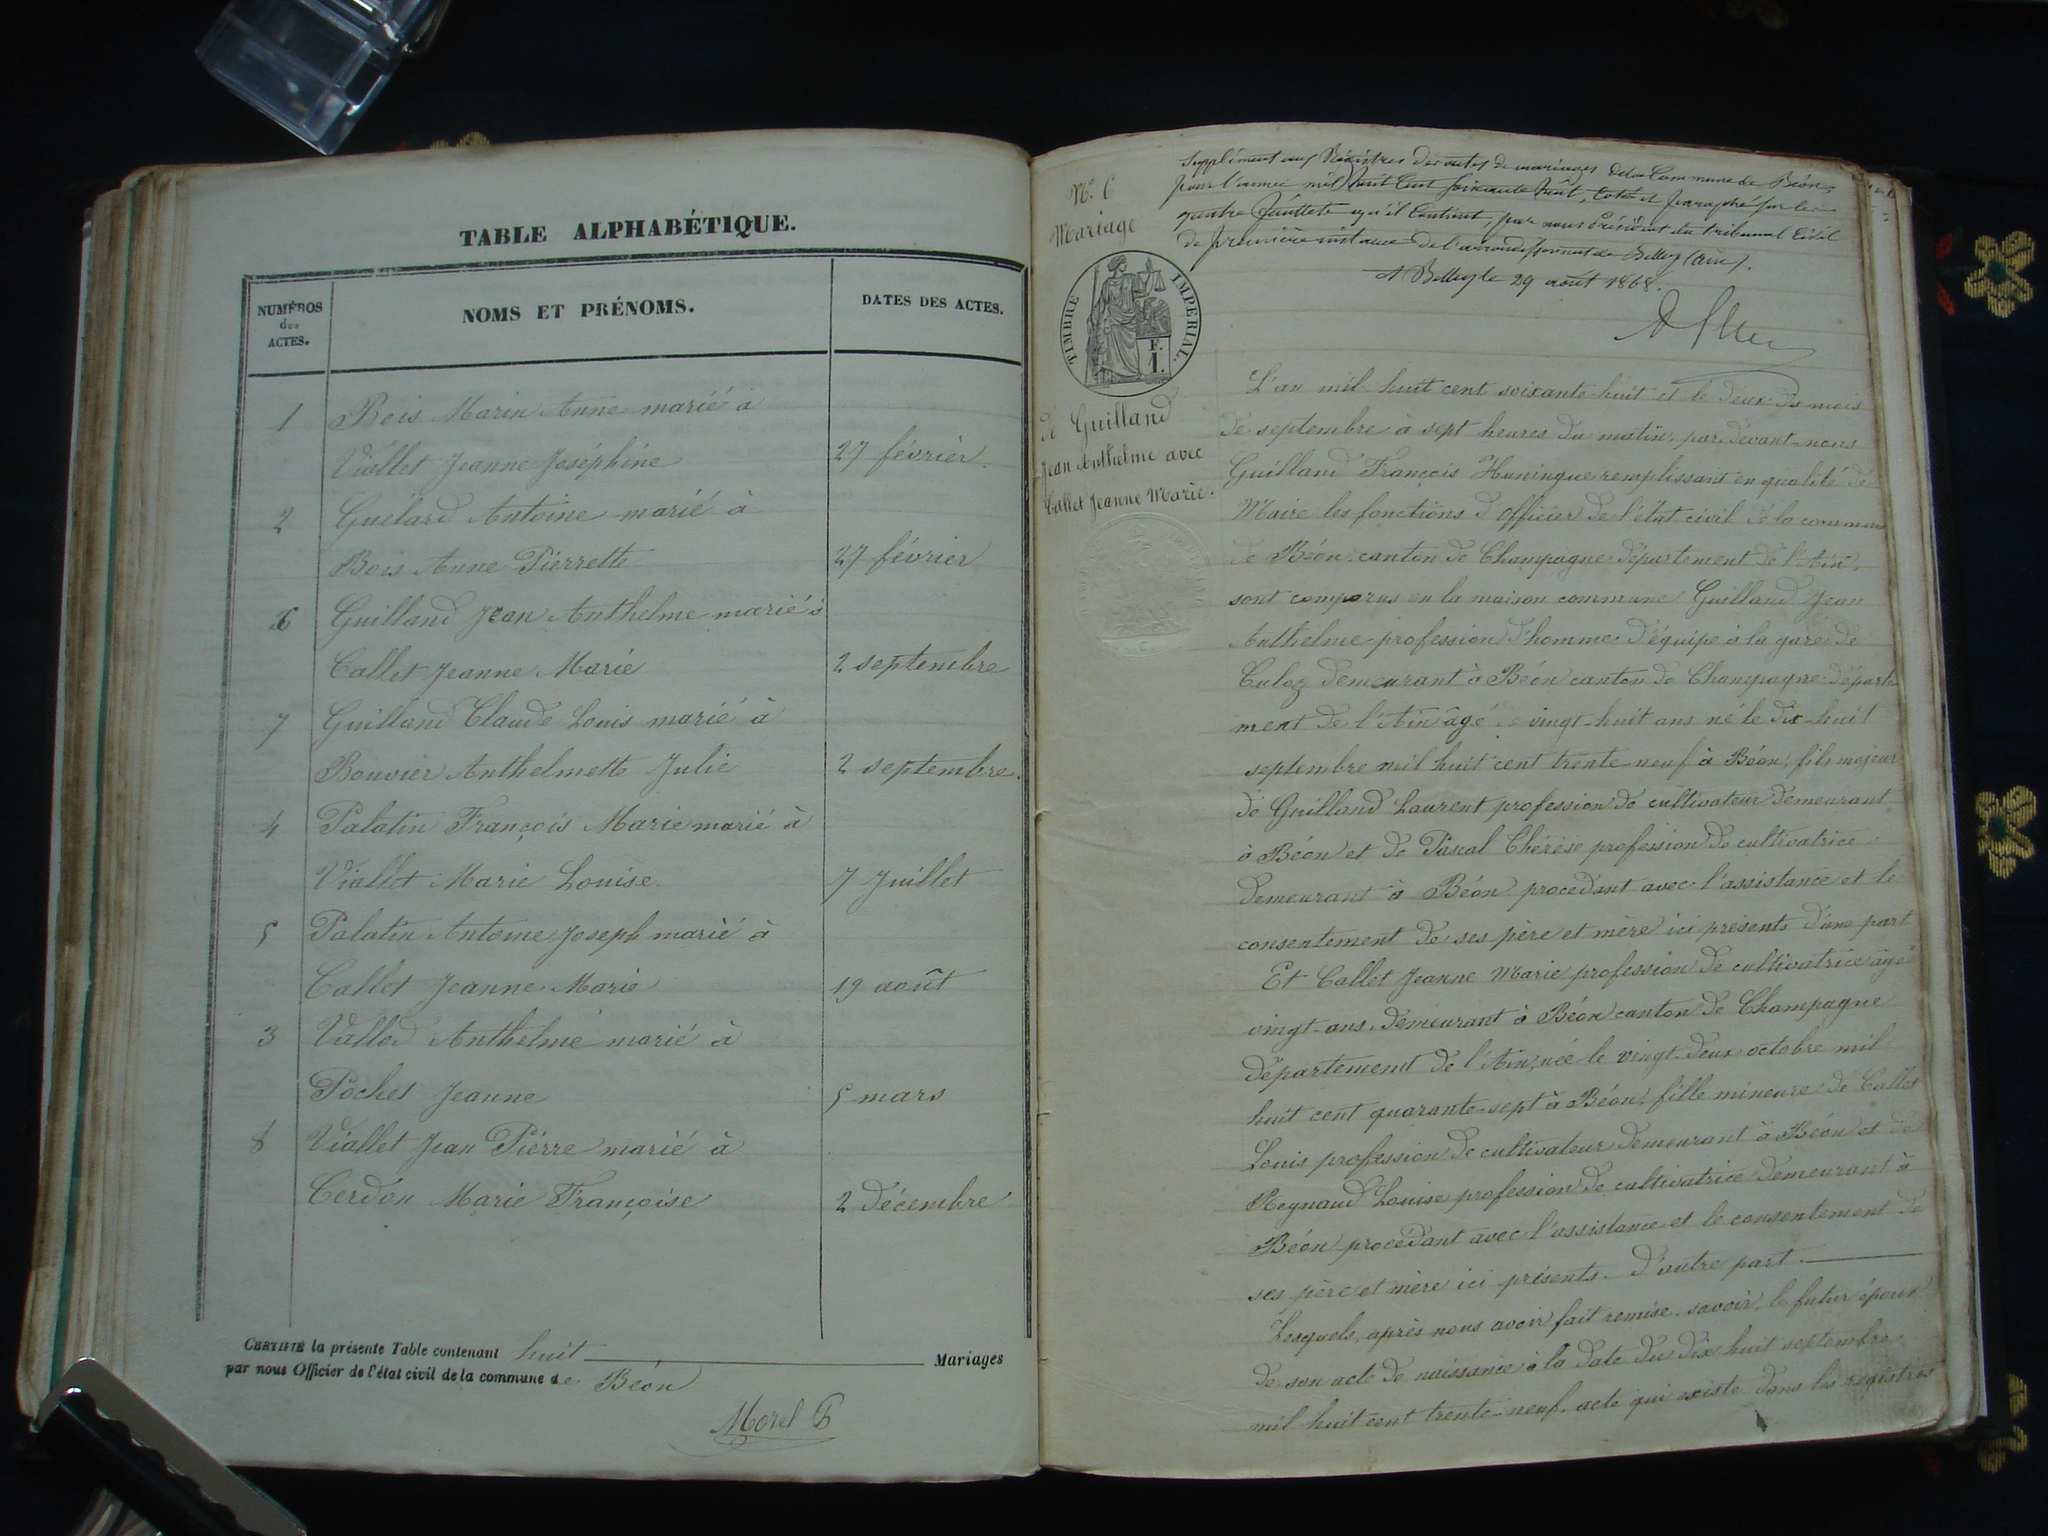 TABLE ALPHABÉTIQUE.
NUMÉROS
des
ACTES.
NOMS ET PRÉNOMS.
DATES DES ACTES.
1 Bois Marin Anne marié à
Viallet Jeanne Joséphine 27 février
2 Guélard Antoine marié à
Bois Anne Pierrette 27 février
6 Guilland Jean Anthelme marié à
Callet Jeanne Marie 2 septembre
7 Guilland Claude Louis marié à
Bouvier Anthelmette Julie 2 septembre.
4 Palatin François Marie marié à
Viallet Marie Louise 7 Juillet
5 Palatin Antoine Joseph marié à
Callet Jeanne Marie 19 août
3 Vallod Anthelme marié à
Pochet Jeanne 5 mars
8 Viallet Jean Pierre marié à
Cerdon Marie Françoise 2 décembre
CERTIFIÉ la présente Table contenant huit Mariages
par nous Officier de l'état civil de la commune de Béon
Morel P
N.º 6
Mariage
TIMBRE IMPÉRIAL.
F.
1.
de Guilland
Jean Anthelme avec
Callet Jeanne Marie.
Supplément aux Régistres des actes de mariages de la Commune de Béon,
pour l'année mil huit cent soixante huit, coté et paraphé sur les
quatre feuillets qu'il contient, par nous Président du tribunal Civil
de première instance de l'arrondissement de Belley (Ain).
A Belley le 29 août 1868.
L'an mil huit cent soixante huit et le deux du mois
de septembre à sept heures du matin, par devant nous
Guilland François Huningue remplissant en qualité de
Maire les fonctions d'officier de l'état civil de la commune
de Béon canton de Champagne département de l'Ain,
sont comparus en la maison commune Guilland Jean
Anthelme profession d'homme d'équipe à la gare de
Culoz demeurant à Béon canton de Champagne départe
ment de l'Ain âgé de vingt-huit ans né le dix-huit
septembre mil huit cent trente neuf à Béon, fils majeur
de Guilland Laurent profession de cultivateur demeurant
à Béon et de Pascal Thérèse profession de cultivatrice
demeurant à Béon procédant avec l'assistance et le
consentement de ses père et mère ici présents d'une part
Et Callet Jeanne Marie profession de cultivatrice âgé
vingt ans, demeurant à Béon canton de Champagne
département de l'Ain, née le vingt-deux octobre mil
huit cent quarante-sept à Béon, fille mineure de Callet
Louis profession de cultivateur demeurant à Béon et de
Reynaud Louise profession de cultivatrice demeurant à
Béon procédant avec l'assistance et le consentement de
ses père et mère ici présents d'autre part.
Lesquels, après nous avoir fait remise, savoir, le futur époux
de son acte de naissance à la date du dix huit septembre
mil huit cent trente-neuf, acte qui existe dans les registres